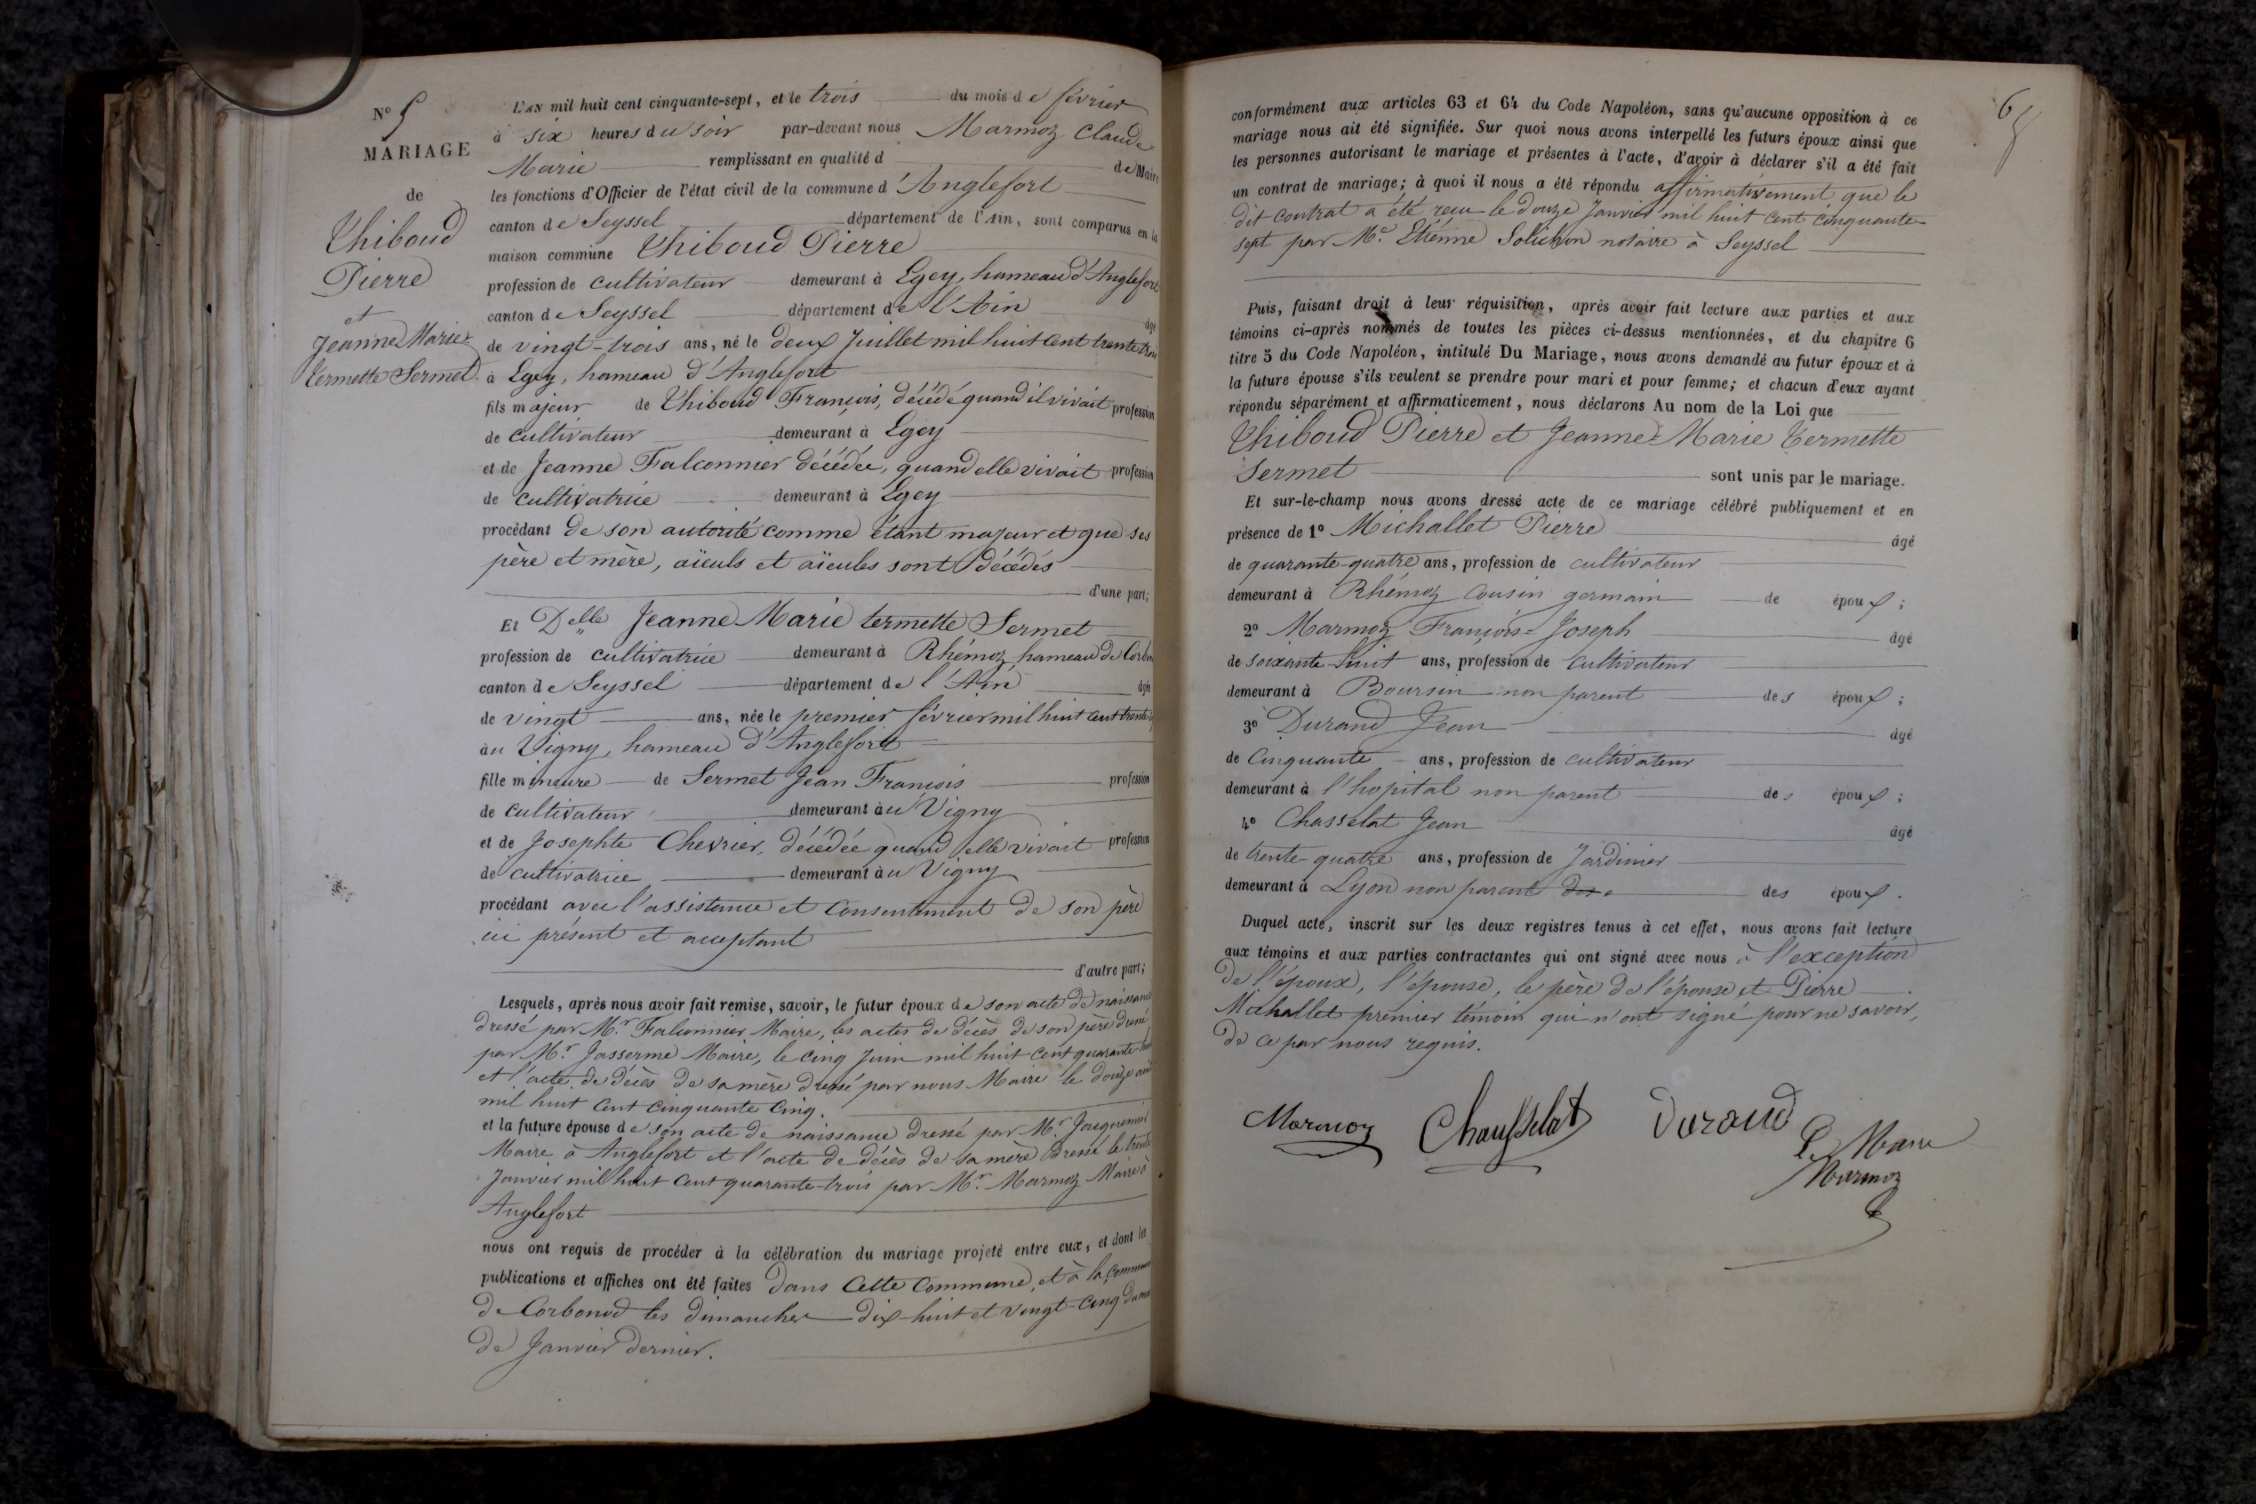 N° 5
MARIAGE
de
Thiboud
Pierre
et
Jeanne Marie
Termette Sermet
L'AN mil huit cent cinquante-sept, et le trois du mois de février
à six heures du soir par-devant nous Marmoz Claude
Marie remplissant en qualité d de Maire
les fonctions d'Officier de l'état civil de la commune d'Anglefort
canton de Seyssel département de l'Ain, sont comparus en la
maison commune Thiboud Pierre
profession de cultivateur demeurant à Egey, hameau d'Anglefort
canton de Seyssel département de l'Ain âgé
de vingt-trois ans, né le deux Juillet mil huit cent trente trois
à Egey, hameau d'Anglefort
fils majeur de Thiboud François, décédé quand il vivait profession
de cultivateur demeurant à Egey
et de Jeanne Falconnier décédée, quand elle vivait profession
de cultivatrice demeurant à Egey
procédant de son autorité comme étant majeur et que ses
père et mère, aïeuls et aïeules sont décédés
d'une part;
Et Delle Jeanne Marie termette Sermet
profession de cultivatrice demeurant à Rhémoz hameau de
canton de Seyssel département de l'Ain âgée
de vingt ans, née le premier février mil huit cent
au Vigny, hameau d'Anglefort
fille mineure de Sermet Jean François profession
de cultivateur demeurant au Vigny
et de Josephte Chevrier, décédée quand elle vivait profession
de cultivatrice demeurant au Vigny
procédant avec l'assistance et consentement de son père
ici présent et acceptant
d'autre part;
Lesquels, après nous avoir fait remise, savoir, le futur époux de son acte de naissance
dressé par Mr. Falconnier Maire, les actes de décès de son père dressé
par Mr. Jasserme Maire, le cinq Juin mil huit cent quarante
et l'acte de décès de sa mère dressé par nous Maire le douze
mil huit cent cinquante cinq.
et la future épouse de son acte de naissance dressé par Mr.
Maire à Anglefort et l'acte de décès de sa mère dressé le trente
Janvier mil huit cent quarante-trois par Mr. Marmoz Maire à
Anglefort
nous ont requis de procéder à la célébration du mariage projeté entre eux, et dont les
publications et affiches ont été faites dans cette commune, et à la commune
de Corbonod les dimanches dix-huit et vingt-cinq du mois
de Janvier dernier.
conformément aux articles 63 et 64 du Code Napoléon, sans qu'aucune opposition à ce
mariage nous ait été signifiée. Sur quoi nous avons interpellé les futurs époux ainsi que
les personnes autorisant le mariage et présentes à l'acte, d'avoir à déclarer s'il a été fait
un contrat de mariage; à quoi il nous a été répondu affirmativement que le
dit contrat a été reçu le douze Janvier mil huit cent cinquante-
sept par Me. Etiénne Solichon notaire à Seyssel
Puis, faisant droit à leur réquisition, après avoir fait lecture aux parties et aux
témoins ci-après nommés de toutes les pièces ci-dessus mentionnées, et du chapitre 6
titre 5 du Code Napoléon, intitulé Du Mariage, nous avons demandé au futur époux et à
la future épouse s'ils veulent se prendre pour mari et pour femme; et chacun d'eux ayant
répondu séparément et affirmativement, nous déclarons Au nom de la Loi que
Thiboud Pierre et Jeanne-Marie Termette
Sermet sont unis par le mariage.
Et sur-le-champ nous avons dressé acte de ce mariage célébré publiquement et en
présence de 1° Michallet Pierre âgé
de quarante-quatre ans, profession de cultivateur
demeurant à Rhémoz cousin germain de époux;
2° Marmoz François-Joseph âgé
de soixante-huit ans, profession de cultivateur
demeurant à Boursin non parent des époux;
3° Durand Jean âgé
de Cinquante ans, profession de cultivateur
demeurant à l'hopital non parent des époux;
4° Chasselat Jean âgé
de trente-quatre ans, profession de Jardinier
demeurant à Lyon non parent des époux.
Duquel acte, inscrit sur les deux registres tenus à cet effet, nous avons fait lecture
aux témoins et aux parties contractantes qui ont signé avec nous à l'exception
de l'époux, l'épouse, le père de l'épouse et Pierre
Michallet premier témoin qui n'ont signé pour ne savoir,
de ce par nous requis.
Marmoz Chausselat Durand Le Maire
Marmoz